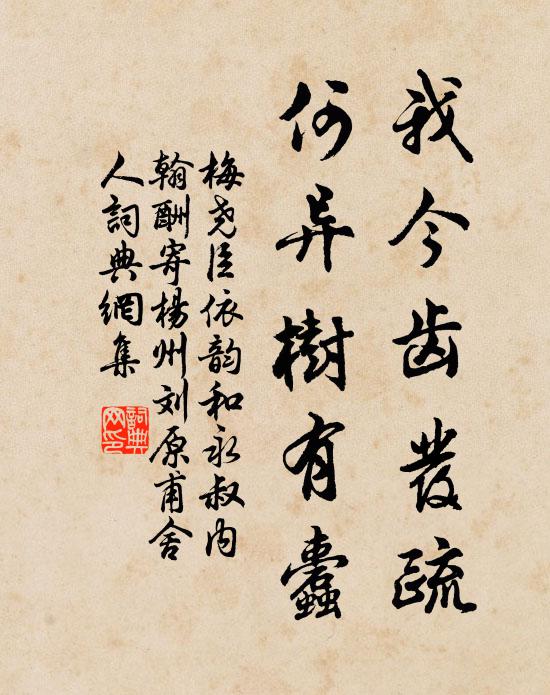 我今齿发疏
何异树有蠹
梅尧臣依韵和永叔内
翰酬寄杨州刘原甫舍
人词典网集
词典网印